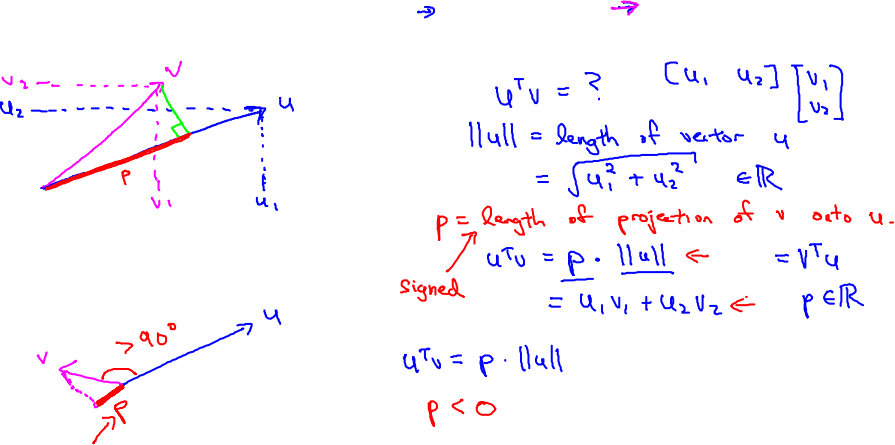 v₂
v
u₂
u
p
v₁
u₁
uᵀv = ? [u₁ u₂] [v₁ v₂]
||u|| = length of vector u
= √(u₁² + u₂²) ∈ ℝ
p = length of projection of v onto u.
signed
uᵀv = p · ||u|| ← = vᵀu
= u₁v₁ + u₂v₂ ← p ∈ ℝ
u
> 90°
v
p
uᵀv = p · ||u||
p < 0